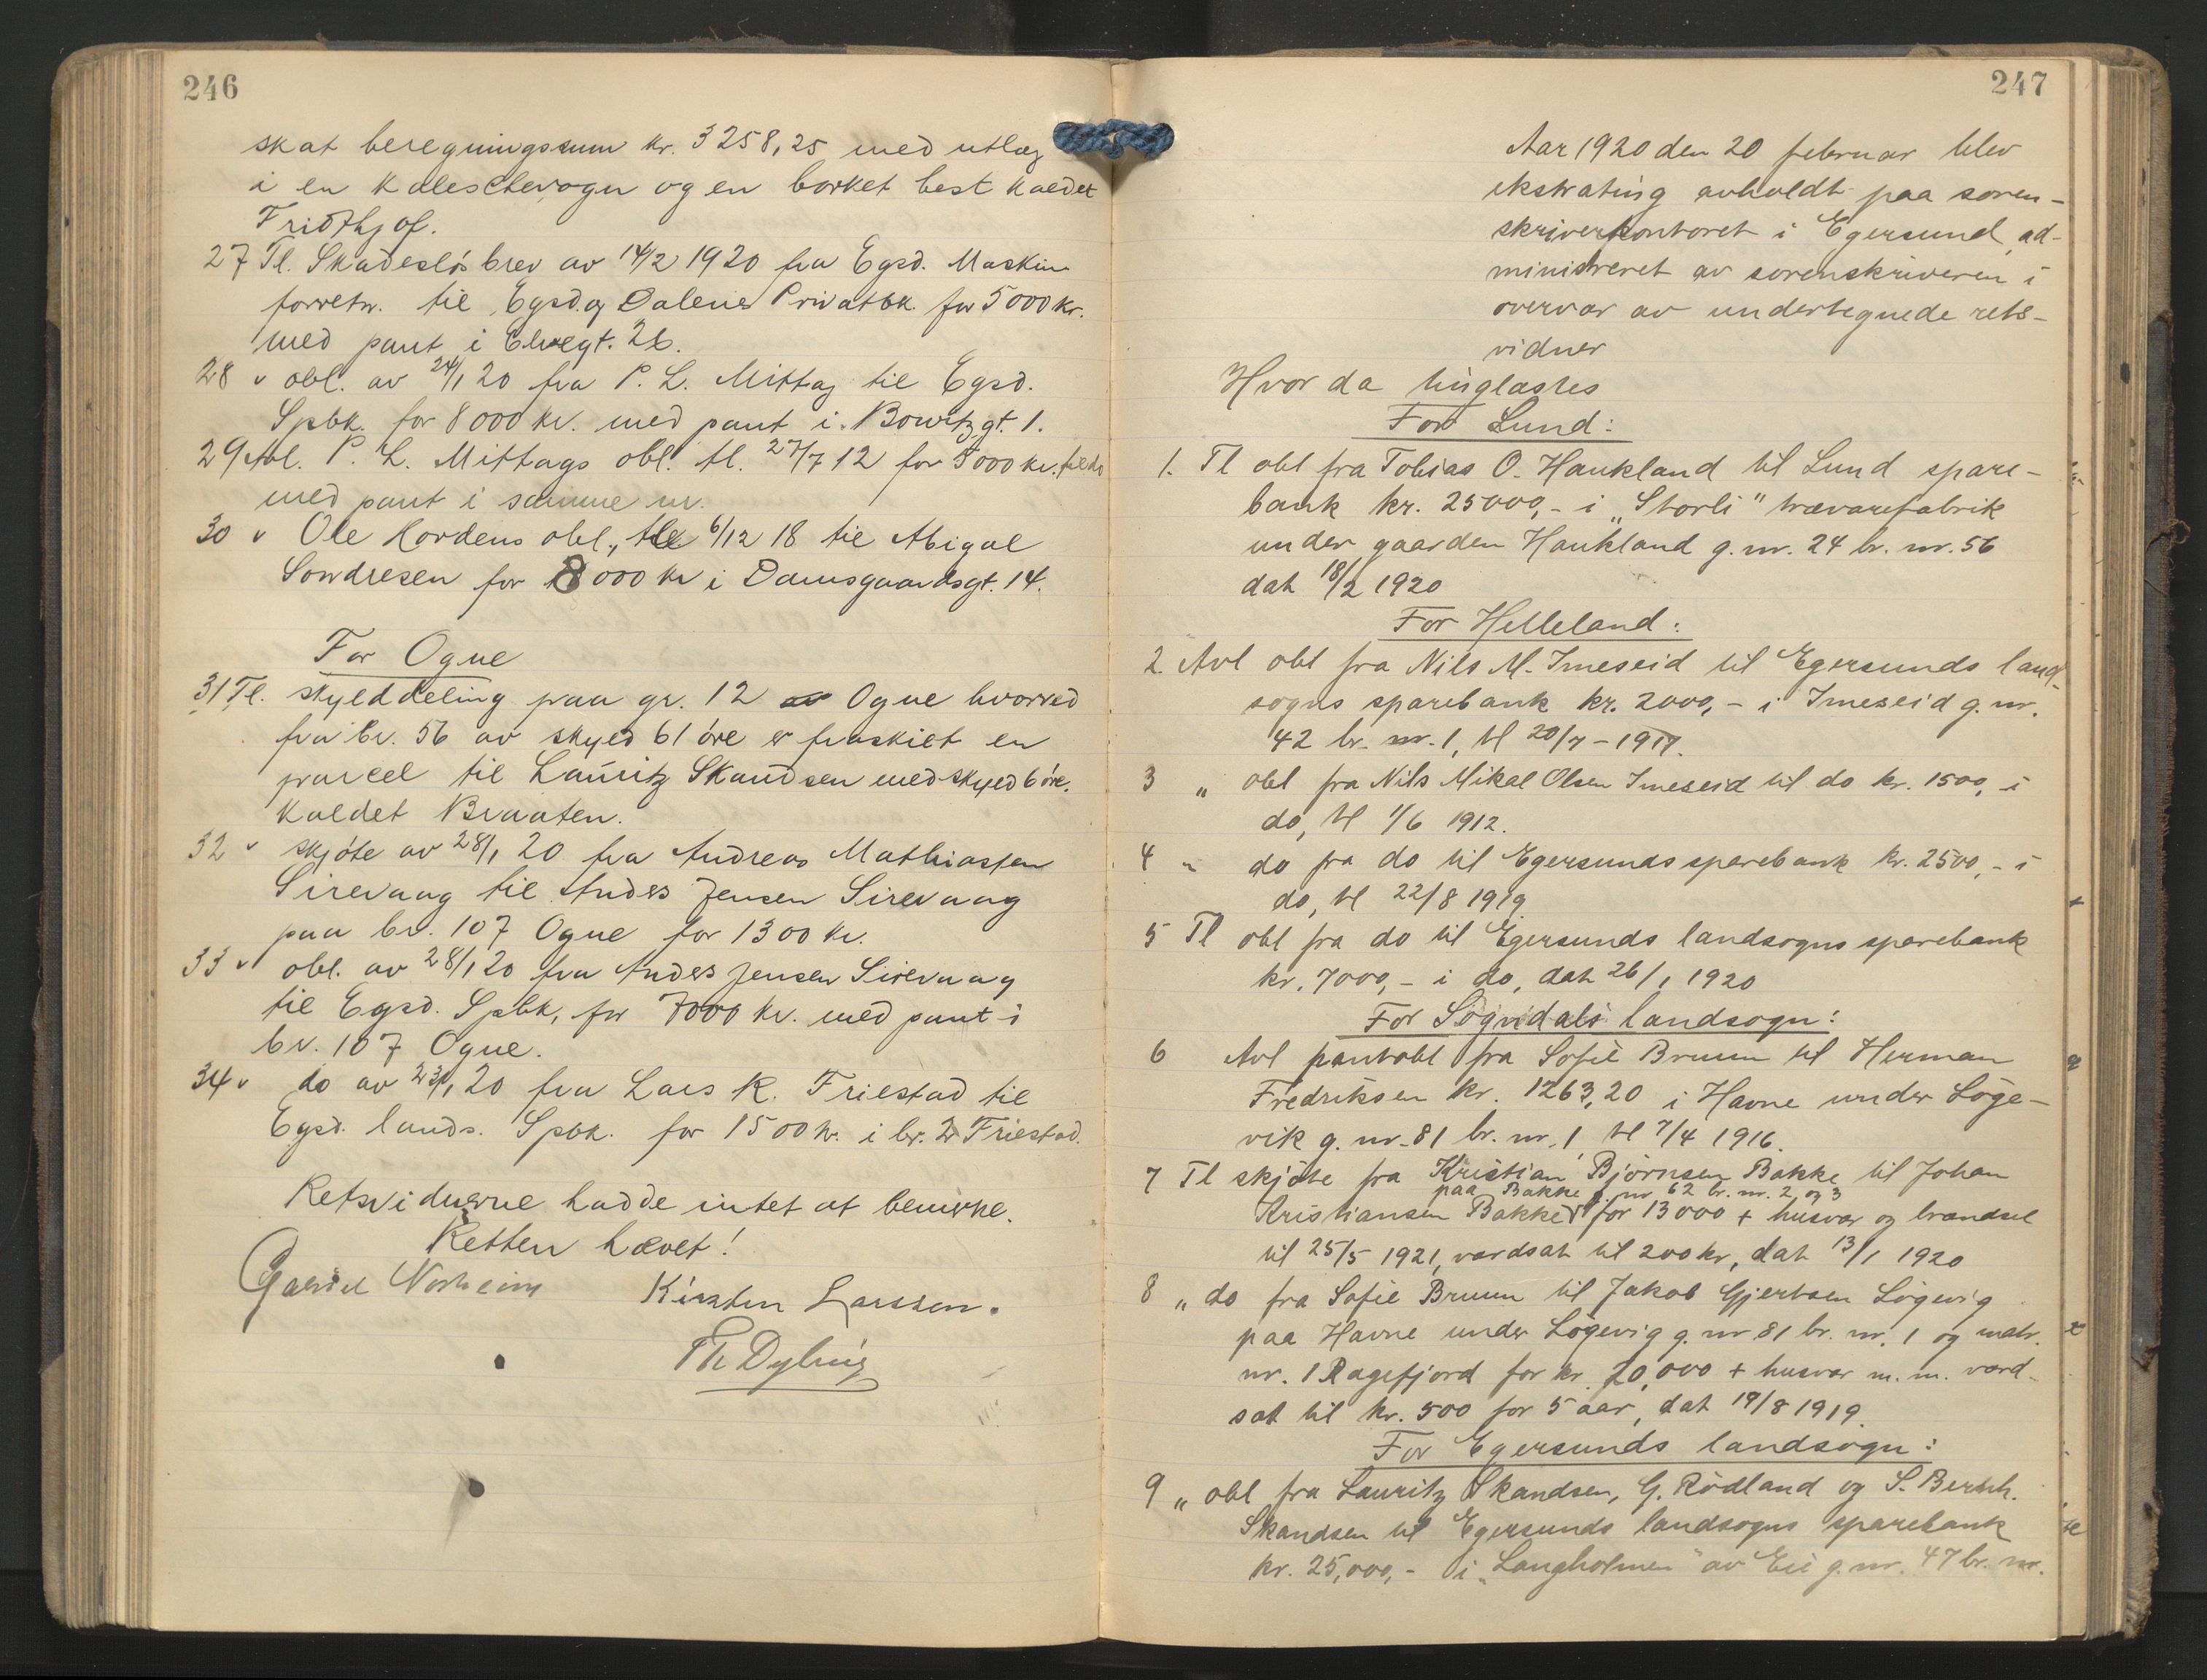 246
skat beregningssum kr. 3258,25 med utlæg
i en kaleschevogn og en borket hest kaldet
Fridthjof.
27 Tl. Skadesløsbrev av 14/2 1920 fra Egsd. Maskin
forretn. til Egsd. og Dalenes Privatbk. for 5000 kr.
med pant i Elvegt. 26.
28 " obl. av 24/1 20 fra P. L. Mittag til Egsd.
Spbk. for 8000 kr. med pant i Bowitz gt. 1.
29 Avl. P. L. Mittags obl. tl. 27/7 12 for 5000 kr. til do
med pant i samme nr.
30 " Ole Hordens obl., tl 6/12 18 til Abigal
Sondresen for 8000 kr i Damsgaardsgt. 14.
For Ogne
31 Tl. skylddeling paa gr. 12 Ogne hvorved
fra br. 56 av skyld 61 øre er fraskilt en
parcel til Lauritz Skandsen med skyld 6 øre.
kaldet Braaten.
32 " skjøte av 28/1 20 fra Andreas Mathiassen
Sirevaag til Anders Jensen Sirevaag
paa br. 107 Ogne for 1300 kr.
33 " obl. av 28/1 20 fra Anders Jensen Sirevaag
til Egsd. Spbk, for 7000 kr. med pant i
br. 107 Ogne.
34 " do av 23/1 20 fra Lars R. Friestad til
Egsd. lands. Spbk. for 1500 kr. i br. 2 Friestad.
Retsvidnerne hadde intet at bemerke.
Retten hævet!
Gabriel Norheim Kirsten Larssen.
Th Dyring
247
Aar 1920 den 20 februar blev
ekstrating avholdt paa soren-
skriverkontoret i Egersund, ad-
ministreret av sorenskriveren i
overvær av undertegnede rets-
vidner
Hvor da tinglæstes
For Lund:
1. Tl obl fra Tobias O. Haukland til Lund spare-
bank kr. 25000,- i "Storli" trævarefabrik
under gaarden Haukland g. nr. 24 br. nr. 56
dat 18/2 1920
For Helleland:
2. Avl obl fra Nils M. Imeseid til Egersunds land-
sogns sparebank kr. 2000,- i Imeseid g. nr.
42 br. nr. 1, tl 20/7 - 1917.
3 " obl fra Nils Mikal Olsen Imeseid til do kr. 1500,- i
do, tl 1/6 1912.
4 " do fra do til Egersunds sparebank kr. 2500,- i
do, tl 22/8 1919
5 Tl obl fra do til Egersunds landsogns sparebank
kr. 7000,- i do, dat 26/1 1920
For Sogndals landsogn:
6 Avl pantobl fra Sofie Bruun til Herman
Fredriksen kr. 1263,20 i Havne under Løge-
vik g. nr. 81 br. nr. 1 tl 7/4 1916.
7 Tl skjøte fra Kristian Bjørnsen Bakke til Johan
paa Bakke g. nr 62 br. nr. 2 og 3
Kristiansen Bakke for 13000 + husvær og brændsel
til 25/5 1921, værdsat til 200 kr, dat 13/1 1920
8 " do fra Sofie Bruun til Jakob Gjertsen Løgevig
paa Havne under Løgevig g. nr 81 br. nr. 1 og matr.
nr. 1 Ragefjord for kr. 20,000 + husvær m. m. værd-
sat til kr. 500 for 5 aar, dat 19/8 1919.
For Egersunds landsogn:
9 " obl fra Lauritz Skandsen, G. Rødland og S. Bernh.
Skandsen til Egersunds landsogns sparebank
kr. 25,000,- i "Langholmen" av Eie g. nr. 47 br. nr.